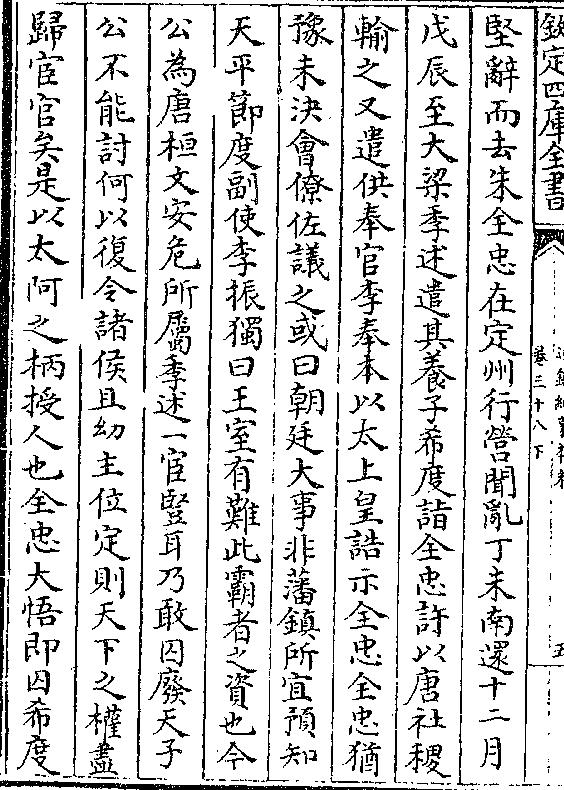 欽定四庫全書
卷三十八下
五
堅辭而去朱全忠在定州行營聞亂丁未南還十二月
戊辰至大梁季述遣其養子希度詣全忠許以唐社稷
輸之又遣供奉官李奉本以太上皇誥示全忠全忠猶
豫未決會僚佐議之或曰朝廷大事非藩鎮所宜預知
天平節度副使李振獨曰王室有難此霸者之資也今
公為唐桓文安危所屬季述一宦豎耳乃敢囚廢天子
公不能討何以復令諸侯且幼主位定則天下之權盡
歸宦官矣是以太阿之柄授人也全忠大悟即囚希度